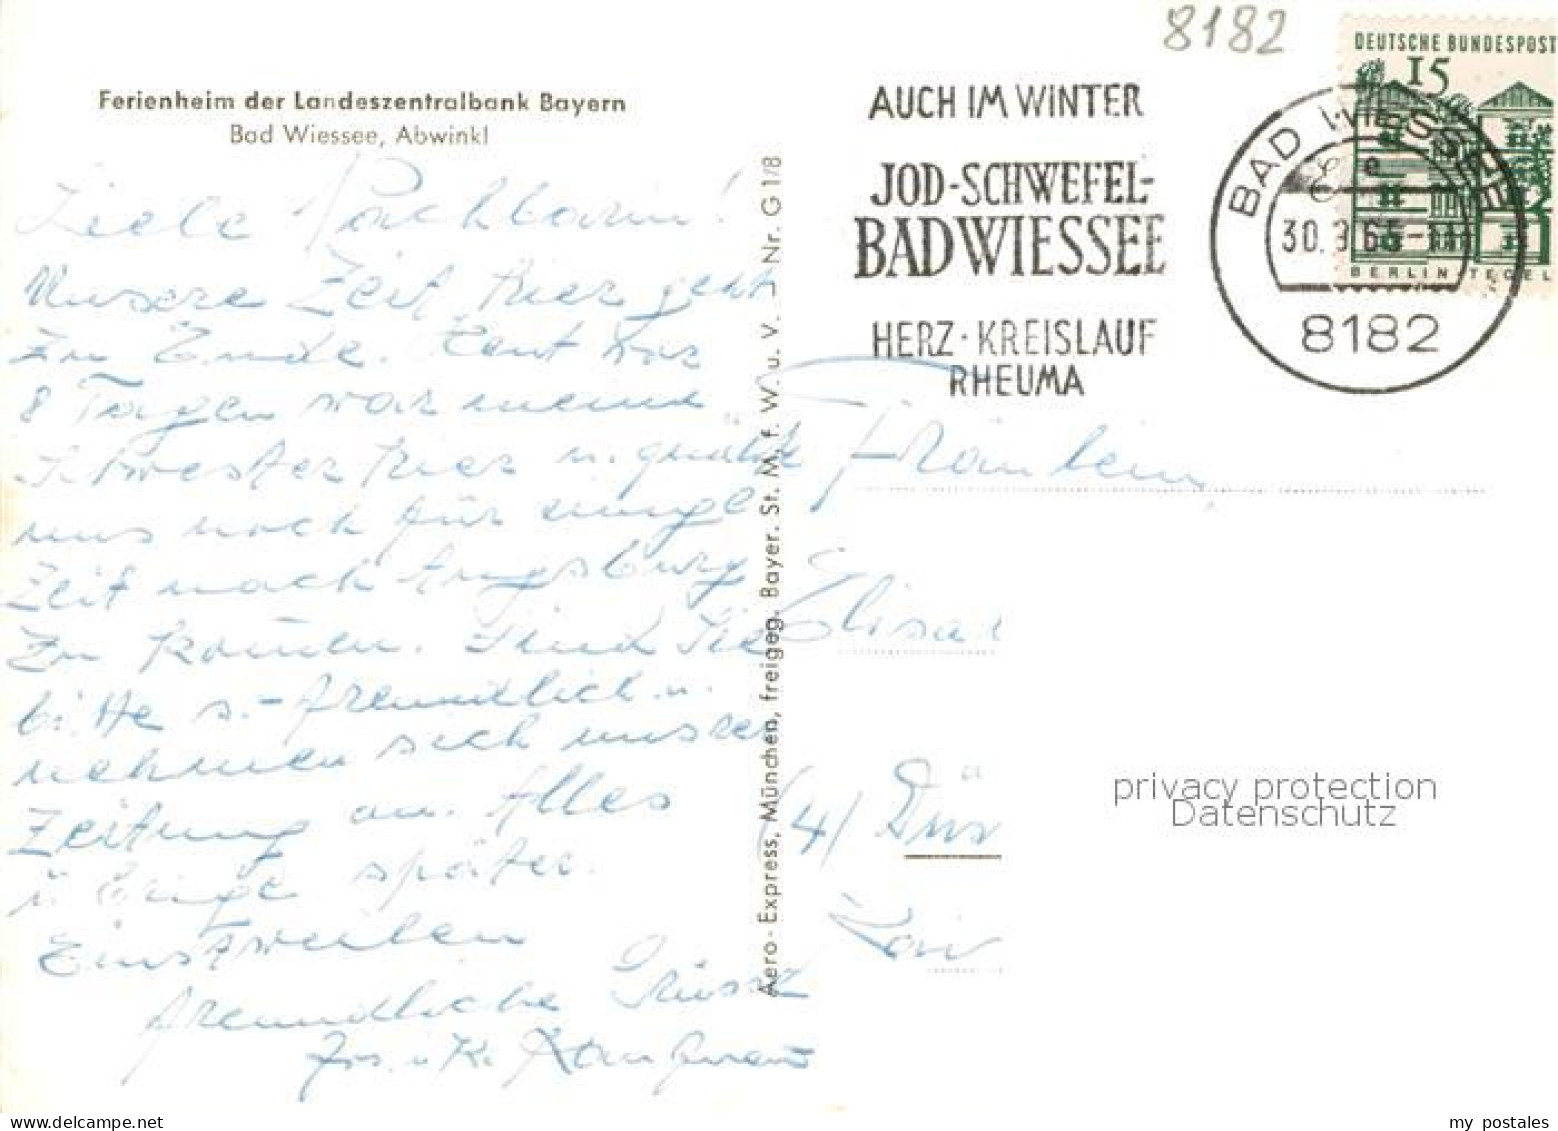 8182
DEUTSCHE BUNDESPOST
15
BERLIN TEGEL
Ferienheim der Landeszentralbank Bayern
Bad Wiessee, Abwinkl
AUCH IM WINTER
JOD-SCHWEFEL-
BAD WIESSEE
HERZ · KREISLAUF
RHEUMA
BAD WIESSEE
e
30. 65-11
8182
Liebe Nachbarin!
Unsere Zeit hier geht
zu Ende. Heut vor
8 Tagen war meine
Schwester hier u. quält
uns noch für einige
Zeit nach Augsburg
zu kommen. Sind Sie
bitte s. freundlich u.
nehmen sich unsrer
Zeitung an. Alles
übrige später.
Einstweilen
freundliche Grüsse
Aero-Express, München, freigeg. Bayer. St. M. f. W. u. V. – Nr. G 1/8
Fräulein
Elisa
(4) Düs
privacy protection
Datenschutz
my postales